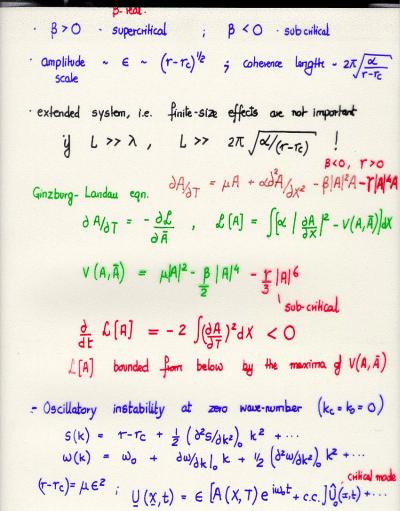 β real.
· β > 0 · supercritical ; β < 0 · subcritical
· amplitude scale ~ ϵ ~ (r-r_c)^{1/2} ; coherence length ~ 2π√(α/(r-r_c))
· extended system, i.e. finite-size effects are not important
if L >> λ, L >> 2π√(α/(r-r_c)) !
β<0, γ>0
Ginzburg-Landau eqn. ∂A/∂T = μA + α∂²A/∂X² - β|A|²A - γ|A|⁴A
∂A/∂T = - ∂ℒ/∂Ā , ℒ[A] = ∫[α|∂A/∂X|² - V(A,Ā)]dX
V(A,Ā) = μ|A|² - β/2 |A|⁴ - γ/3 |A|⁶
sub-critical
∂/∂t ℒ[A] = -2 ∫(∂A/∂T)² dX < 0
ℒ[A] bounded from below by the maxima of V(A,Ā)
- Oscillatory instability at zero wave-number (k_c = k_0 = 0)
s(k) = r-r_c + 1/2 (∂²s/∂k²)₀ k² + ...
ω(k) = ω₀ + ∂ω/∂k|₀ k + 1/2 (∂²ω/∂k²)₀ k² + ...
critical mode
(r-r_c) = μϵ² ; U(x,t) = ϵ [A(X,T) e^{iω₀t} + c.c.] Û₀(x,t) + ...